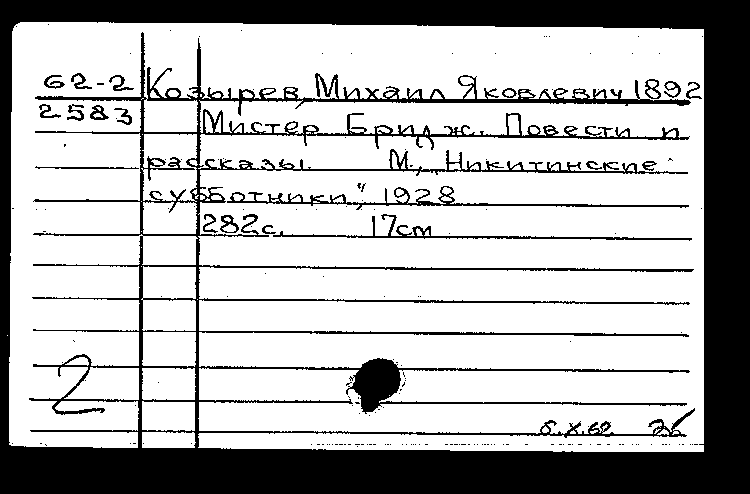 62-2 Козырев, Михаил Яковлевич, 1892
2583 Мистер Бридж. Повести и
рассказы. М., "Никитинские
субботники", 1928
282с. 17cm
2